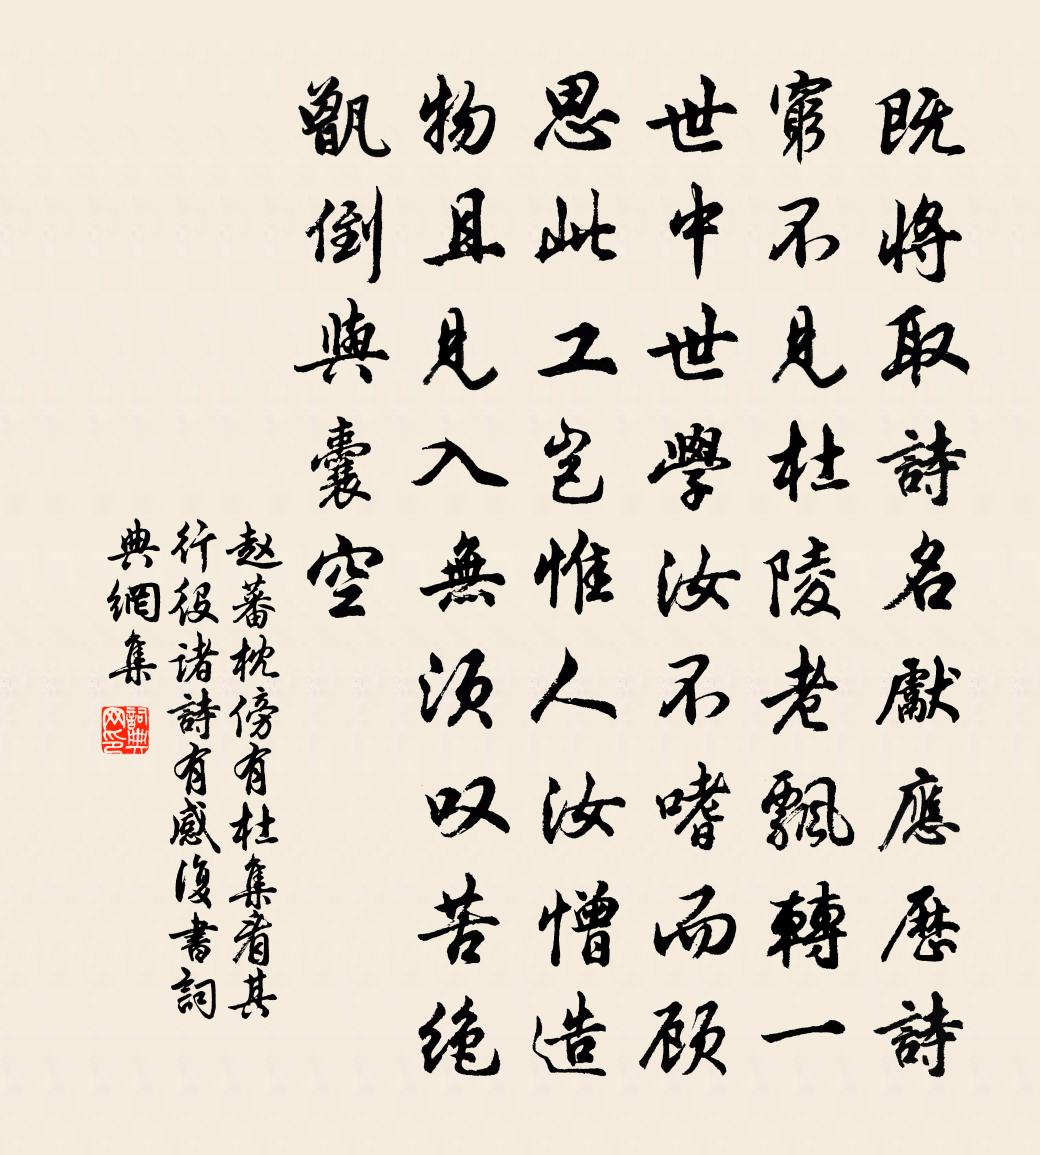 既将取詩名獻應歷詩
窮不見杜陵老飄轉一
世中世學汝不嗜而顾
思此工豈惟人汝憎造
物且見入無須叹苦绝
甑倒與囊空
赵蕃枕傍有杜集看其
行役诸詩有感復書詞
典網集
詞典网印